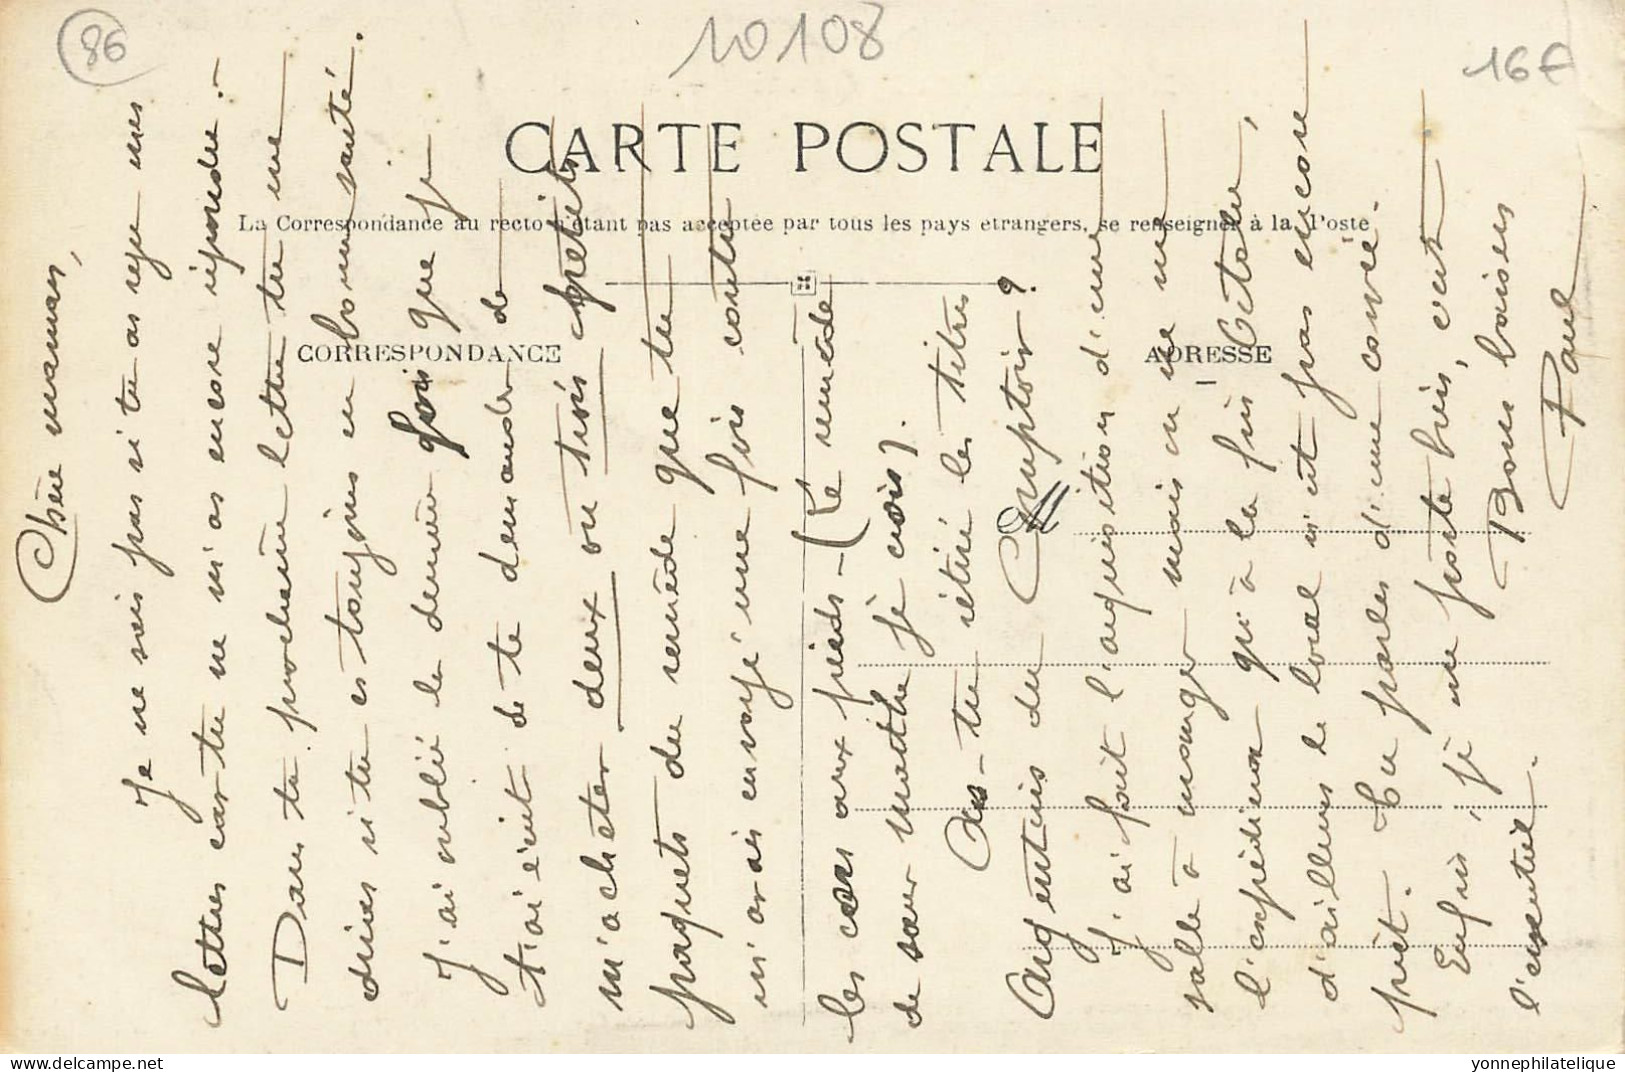 86
10108
16€
CARTE POSTALE
La Correspondance au recto n'étant pas acceptée par tous les pays étrangers, se renseigner à la Poste
CORRESPONDANCE
ADRESSE
Chère maman,
Je ne sais pas si tu as reçu mes
lettres car tu ne m'as encore répondu.-
Dans ta prochaine lettre tu me
diras si tu es toujours en bonne santé.
J'ai oublié la dernière fois que je
t'ai écrit de te demander de
m'acheter deux ou trois petits
paquets du remède que tu
m'avais envoyé une fois contre
les cors aux pieds - (Le remède
de sœur Marthe je crois).
As-tu retiré les titres
Argentins du Comptoir ?
J'ai fait l'acquisition d'une
salle à manger mais on ne me
l'expédiera qu'à la fin Octobre,
d'ailleurs le local n'est pas encore
prêt. Tu parles d'une corvée.
Enfin, je me porte bien, c'est
l'essentiel.
Bons baisers
Paul
delcampe.net
yonnephilatelique